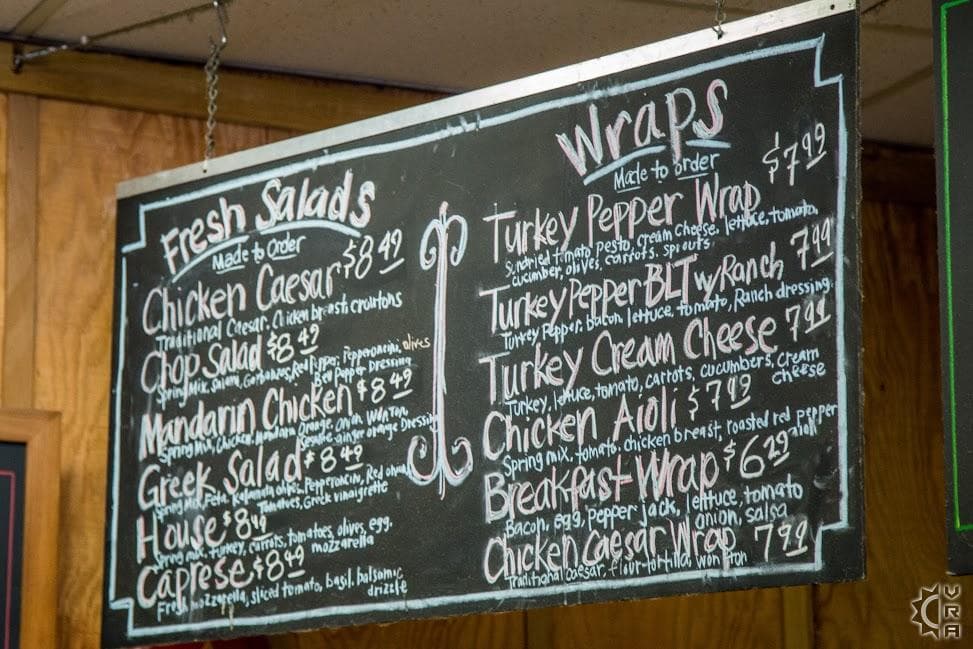 Fresh Salads
Made to Order
Chicken Caesar $8.49
Traditional Caesar, Chicken breast, croutons
Chop Salad $8.49
Spring Mix, Salami, Garbanzos, Red Pepper, Pepperoncini, olives
Bell Pepper Dressing
Mandarin Chicken $8.49
Spring Mix, Chicken, Mandarin Orange, Onion, Wonton,
Sesame-ginger orange Dressing
Greek Salad $8.49
Spring Mix, Feta, Kalamata olives, Pepperoncin, Red onion,
Tomatoes, Greek vinaigrette
House $8.49
Spring mix, turkey, carrots, tomatoes, olives, egg,
mozzarella
Caprese $8.49
Fresh mozzarella, sliced tomato, basil, balsamic
drizzle
Wraps
Made to order
Turkey Pepper Wrap $7.99
Sundried tomato pesto, cream cheese, lettuce, tomato,
cucumber, olives, carrots, sprouts.
Turkey Pepper BLT w/ Ranch 7.99
Turkey, Pepper, bacon, lettuce, tomato, Ranch dressing.
Turkey Cream Cheese 7.99
Turkey, lettuce, tomato, carrots, cucumbers, cream
cheese
Chicken Aioli $7.99
Spring mix, tomato, chicken breast, roasted red pepper
aioli
Breakfast Wrap $6.29
Bacon, egg, pepper jack, lettuce, tomato
onion, salsa
Chicken Caesar Wrap 7.99
Traditional caesar, flour tortilla, wonton
VRA